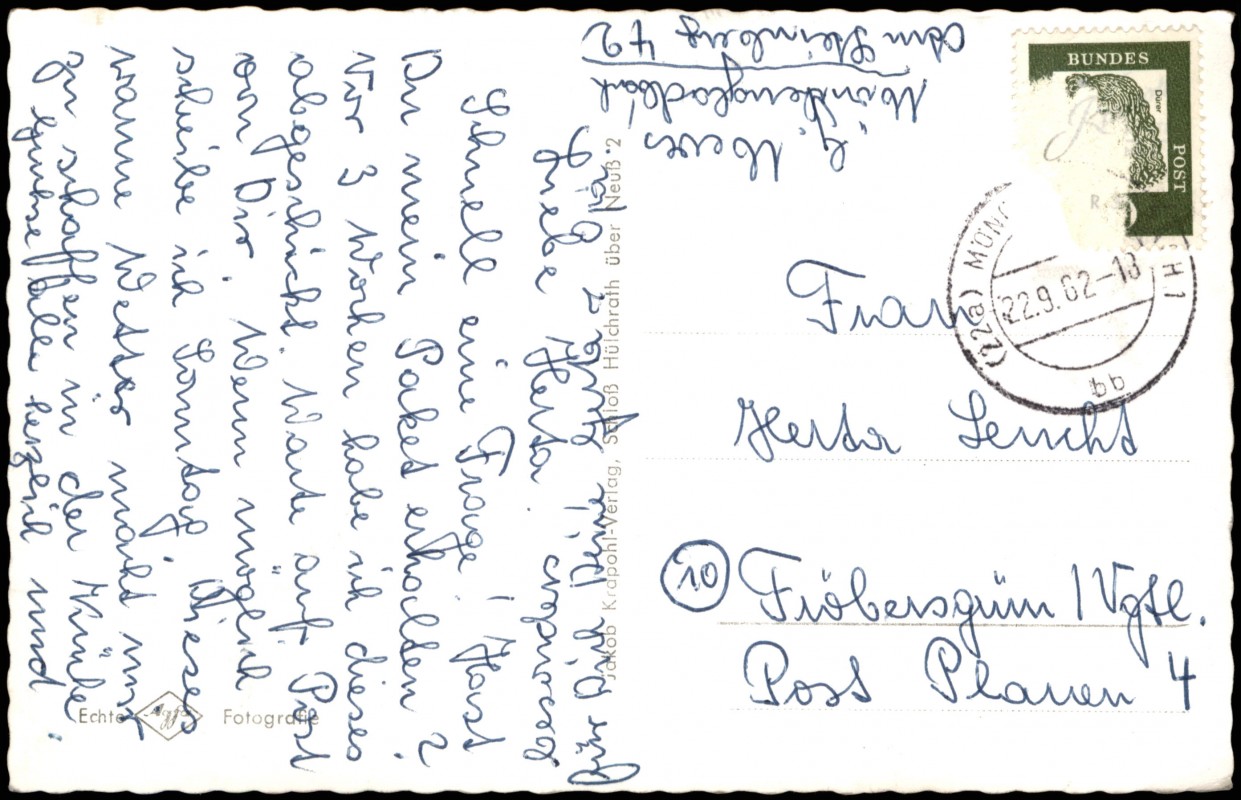 Mönchengladbach
Am Steinberg
Liebe Herta
Schnell eine Frage! Hast
Du mein Paket erhalten?
Vor 3 Wochen habe ich dieses
abgeschickt. Warte auf Post
von Dir. Wenn möglich
schreibe ich Sonntag. Dieses
warme Wetter macht mir
zu schaffen in der Küche.
Grüße alle herzlich und
für Dich Deine
Echte Agfa Fotografie
Jakob Krapohl-Verlag, Schloß Hülchrath über Neuß 2
BUNDES
POST
Dürer
(22a) MÖNC
22.9.62-18
bb
Frau
Herta Leucht
10 Fröbersgrün / Vgtl.
Post Plauen 4